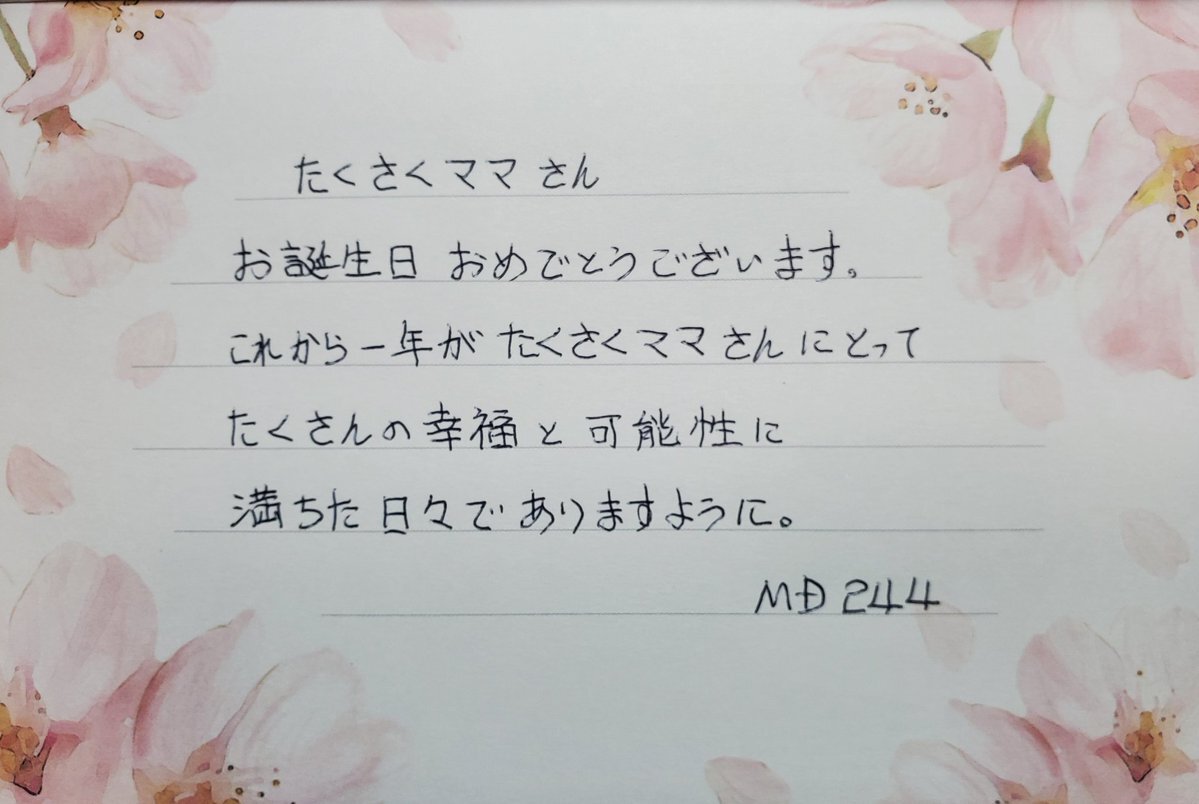 たくさくママさん
お誕生日 おめでとうございます。
これから一年が たくさくママさんにとって
たくさんの幸福と可能性に
満ちた日々でありますように。
MD 244